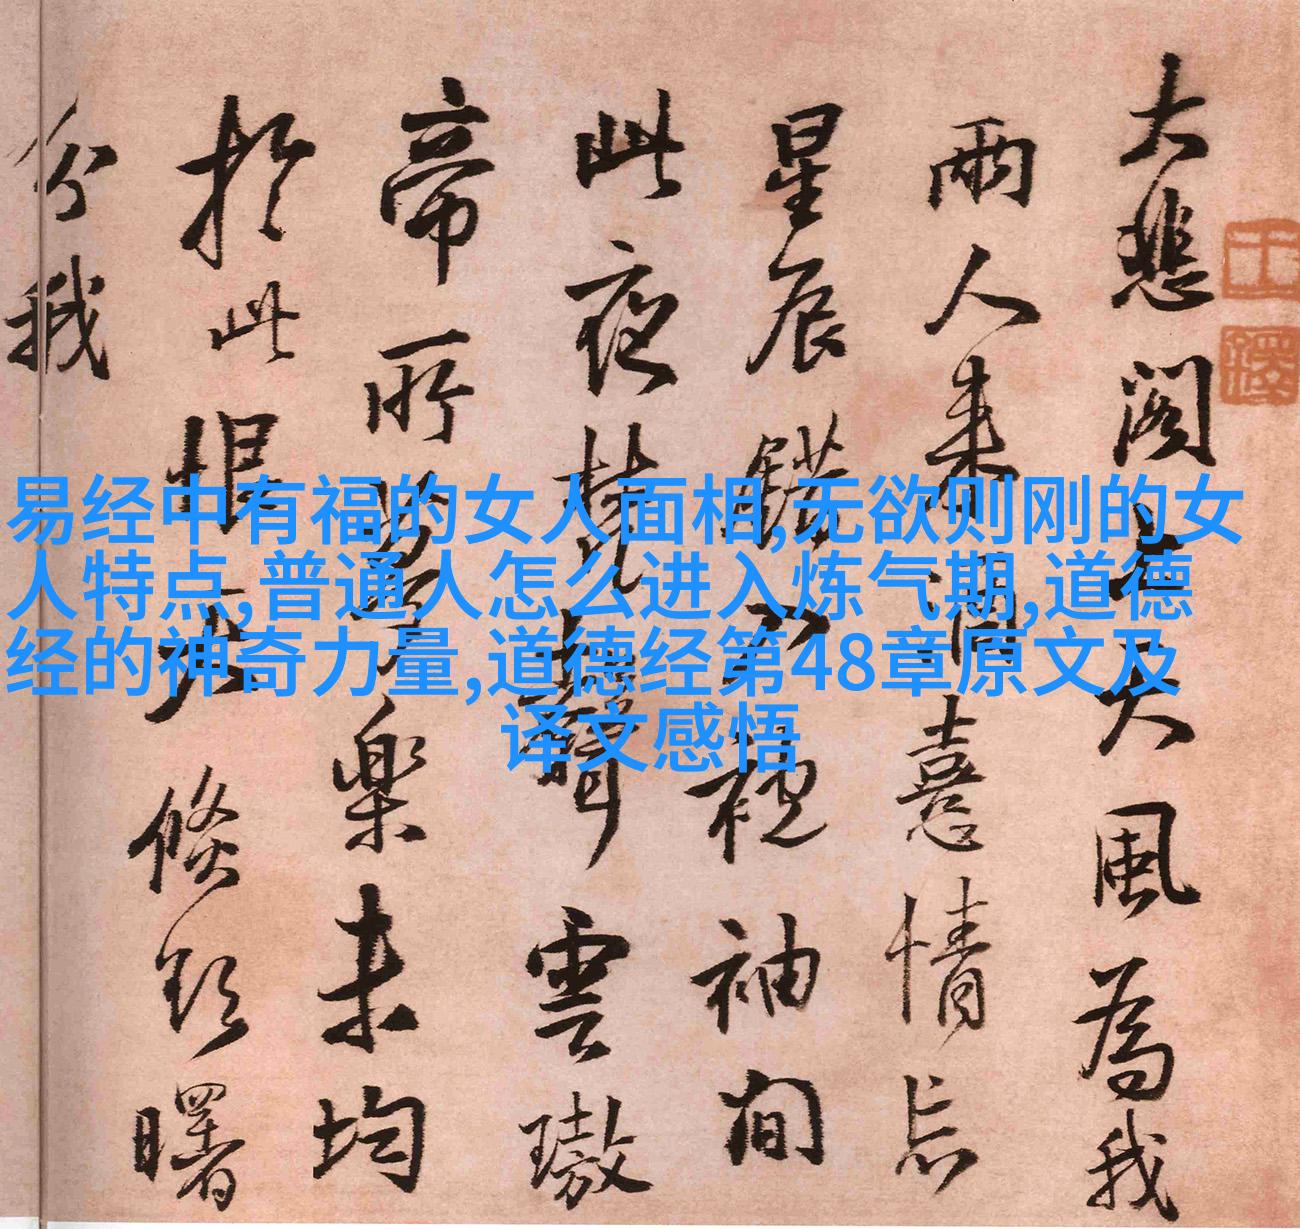 易经中有福的女人面相,无欲则刚的女
人特点,普通人怎么进入炼气期,道德
经的神奇力量,道德经第48章原文及
译文感悟
大悲閣大風為我
兩人来情忘
星辰錯袖間
此夜梵聲雲璈
帝所樂未均
於此恨不倏曙
分我